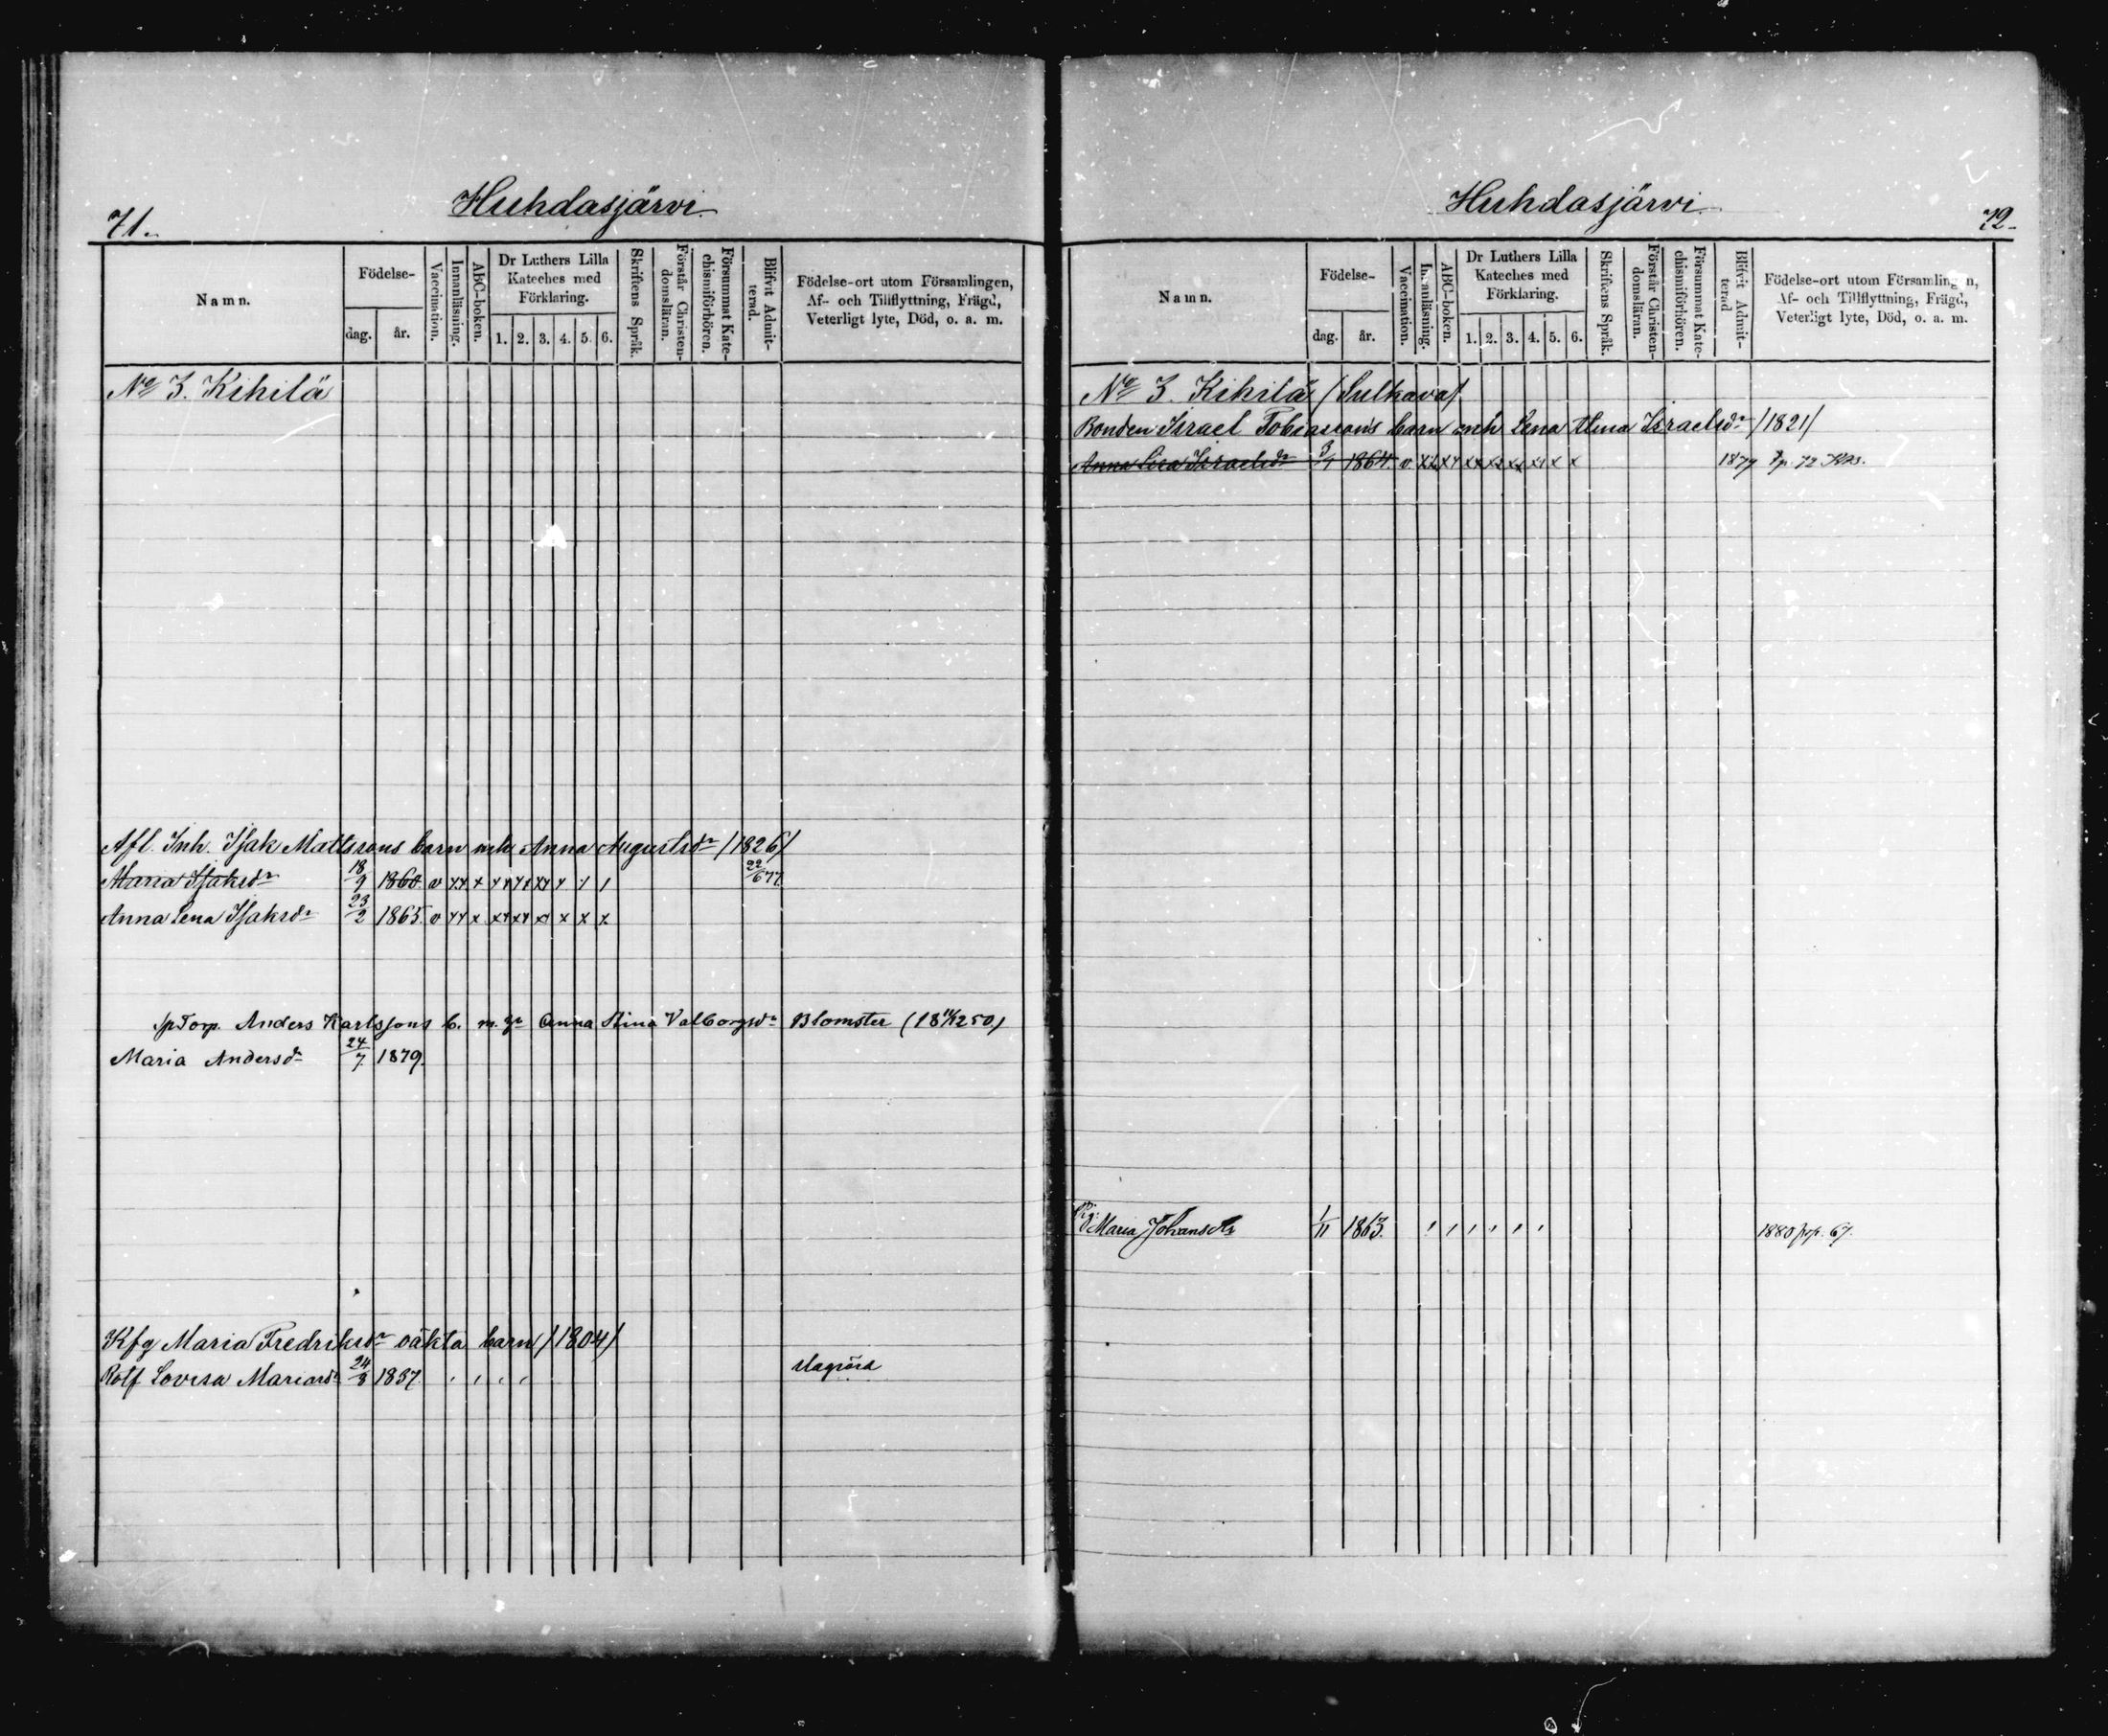 71.
Huhdasjärvi
Namn.
Födelse-
dag.
år.
Vaccination.
Innanläsning.
ABC-boken.
Dr Luthers Lilla
Kateches med
Förklaring.
1. 2. 3. 4. 5. 6.
Skriftens Språk.
Förstår Christen-
domsläran.
Försummat Kate-
chismiförhören.
Blifvit Admit-
terad.
Födelse-ort utom Församlingen,
Af- och Tillflyttning, Frägd,
Veterligt lyte, Död, o. a. m.
No 3. Kihilä
Afl. Inh. Isak Mattssons barn mh Anna Augustsdr /1826/
Maria Isaksdr 18/9 1860. v xx x xx xx xx x / / 22/6 77
Anna Lena Isaksdr 23/2 1865. v xx x xx xx x x x x
Torp. Anders Karlssons b. m. Anna Stina Valborgsdr Blomster
Maria Andersdr 24/7 1879.
Kfq Maria Fredriksdr oäkta barn /1804/
Rotf Lovisa Mariasdr 24/3 1837
72.
Huhdasjärvi
Namn.
Födelse-
dag.
år.
Vaccination.
Innanläsning.
ABC-boken.
Dr Luthers Lilla
Kateches med
Förklaring.
1. 2. 3. 4. 5. 6.
Skriftens Språk.
Förstår Christen-
domsläran.
Försummat Kate-
chismiförhören.
Blifvit Admit-
terad
Födelse-ort utom Församlingen,
Af- och Tillflyttning, Frägd,
Veterligt lyte, Död, o. a. m.
No 3. Kihilä /Sulkava/
Bonden Israel Tobiassons barn mh Lena Israelsdr /1821/
Anna Lisa Israelsdr 1864. v xx xx xx xx xx xx x x 1879 p. 72
Pig. Maria Johansdr 1/11 1863. 1880 p. 67.